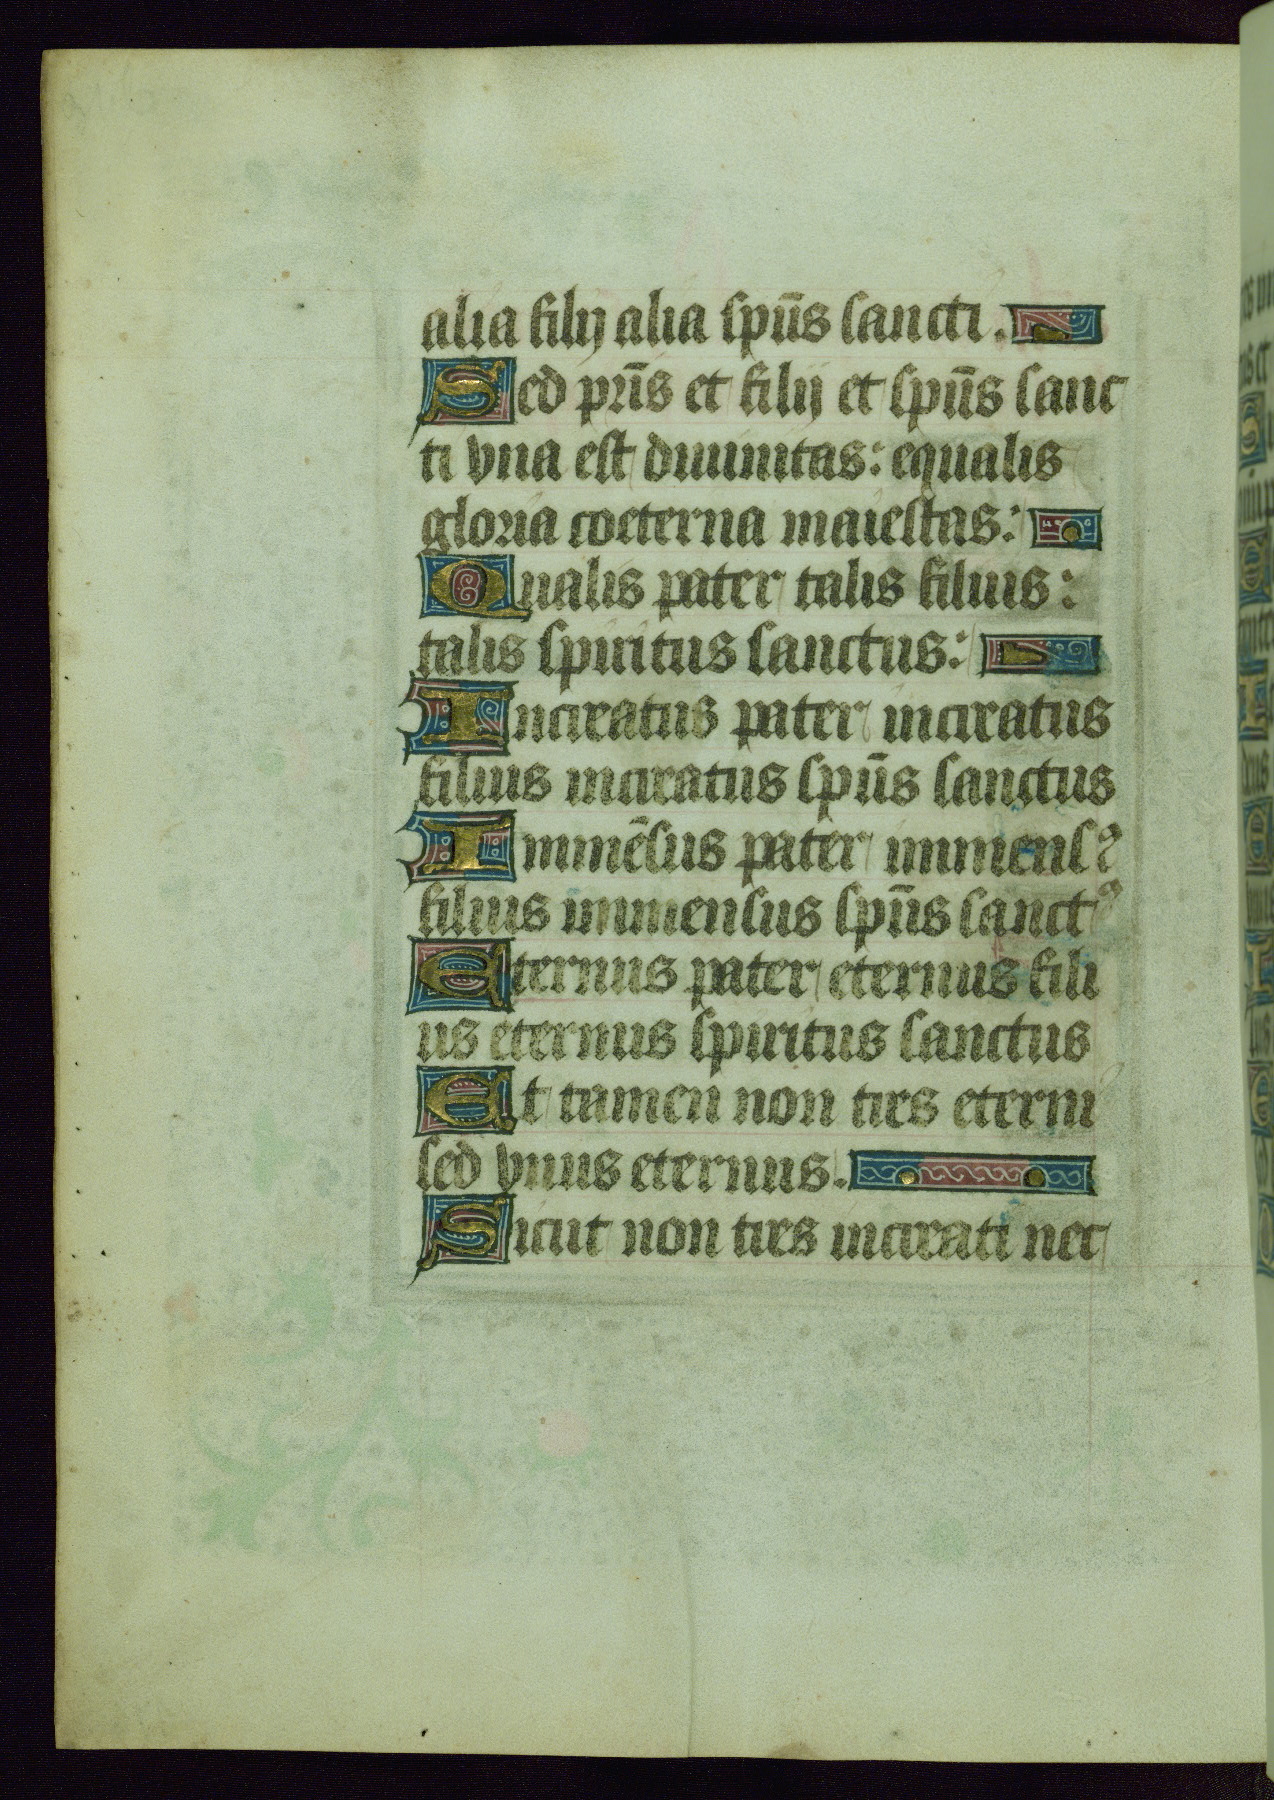 alia filij alia spūs sancti.
Sed pr̄is et filij et spūs sanc
ti vna est diuinitas: equalis
gloria coeterna maiestas:
Qualis pater talis filius:
talis spiritus sanctus:
Increatus pater increatus
filius increatus spūs sanctus
Immēsus pater immensꝰ
filius immensus spūs sanctꝰ
Eternus pater eternus fili
us eternus spiritus sanctus
Et tamen non tres eterni
sed vnus eternus.
Sicut non tres increati nec